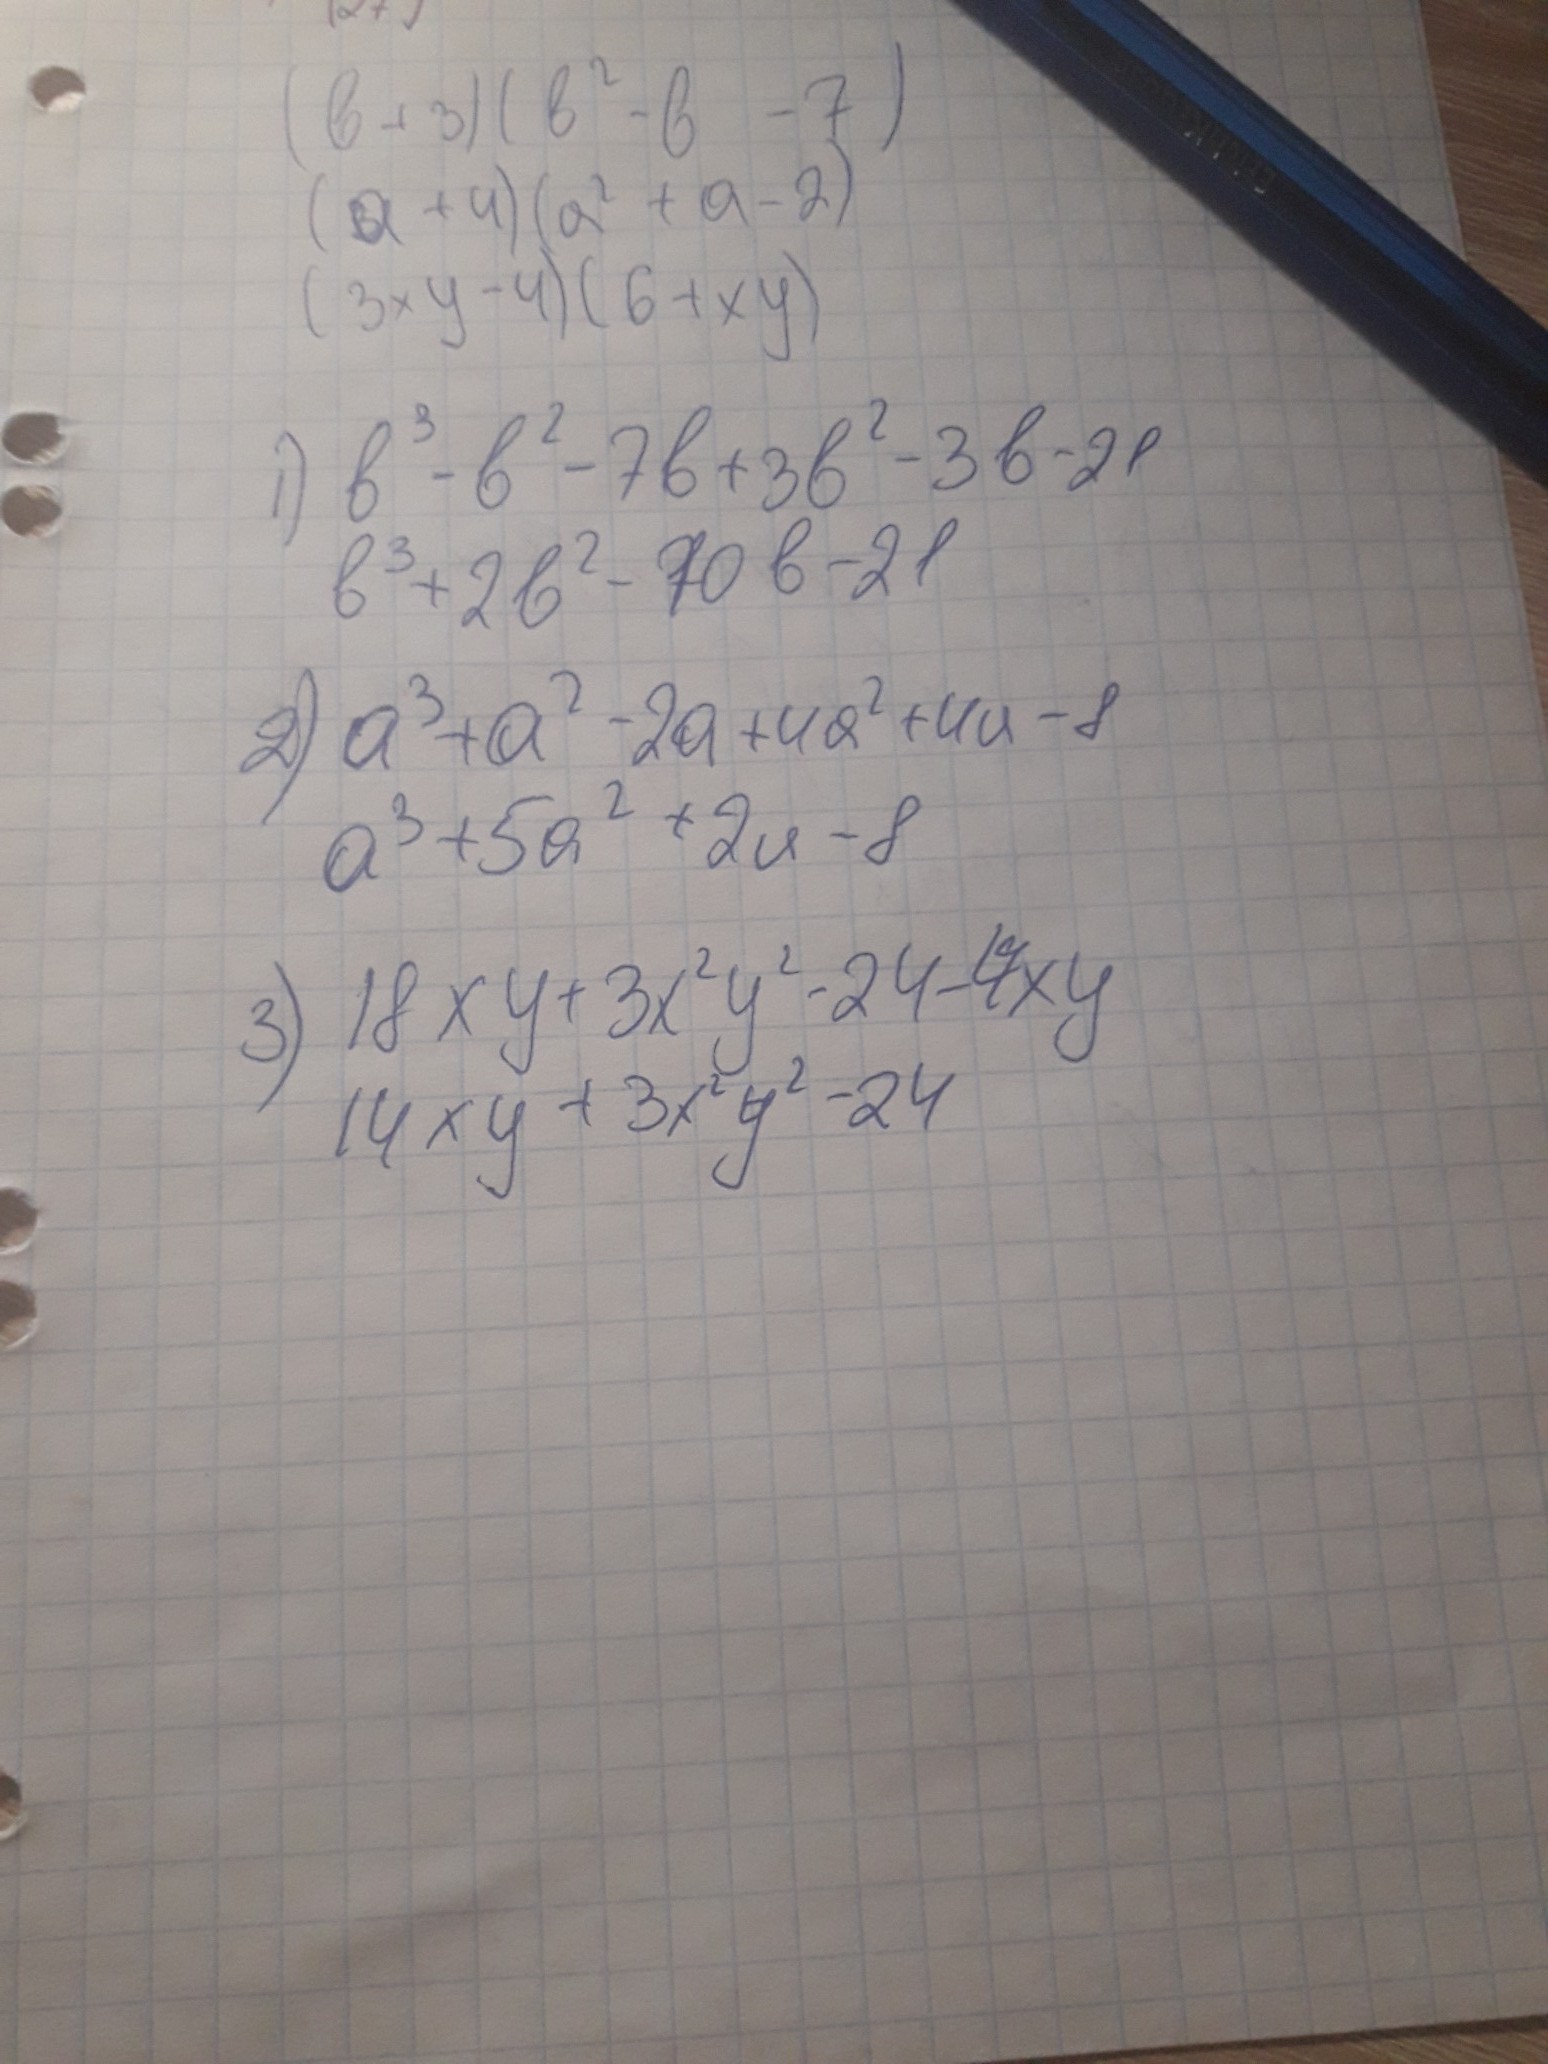 (b+3)(b²-b -7)
(a+4)(a²+a-2)
(3xy-4)(6+xy)
1) b³-b²-7b+3b²-3b-21
b³+2b²-10b-21
2) a³+a²-2a+4a²+4a-8
a³+5a²+2a-8
3) 18xy+3x²y²-24-4xy
14xy+3x²y²-24